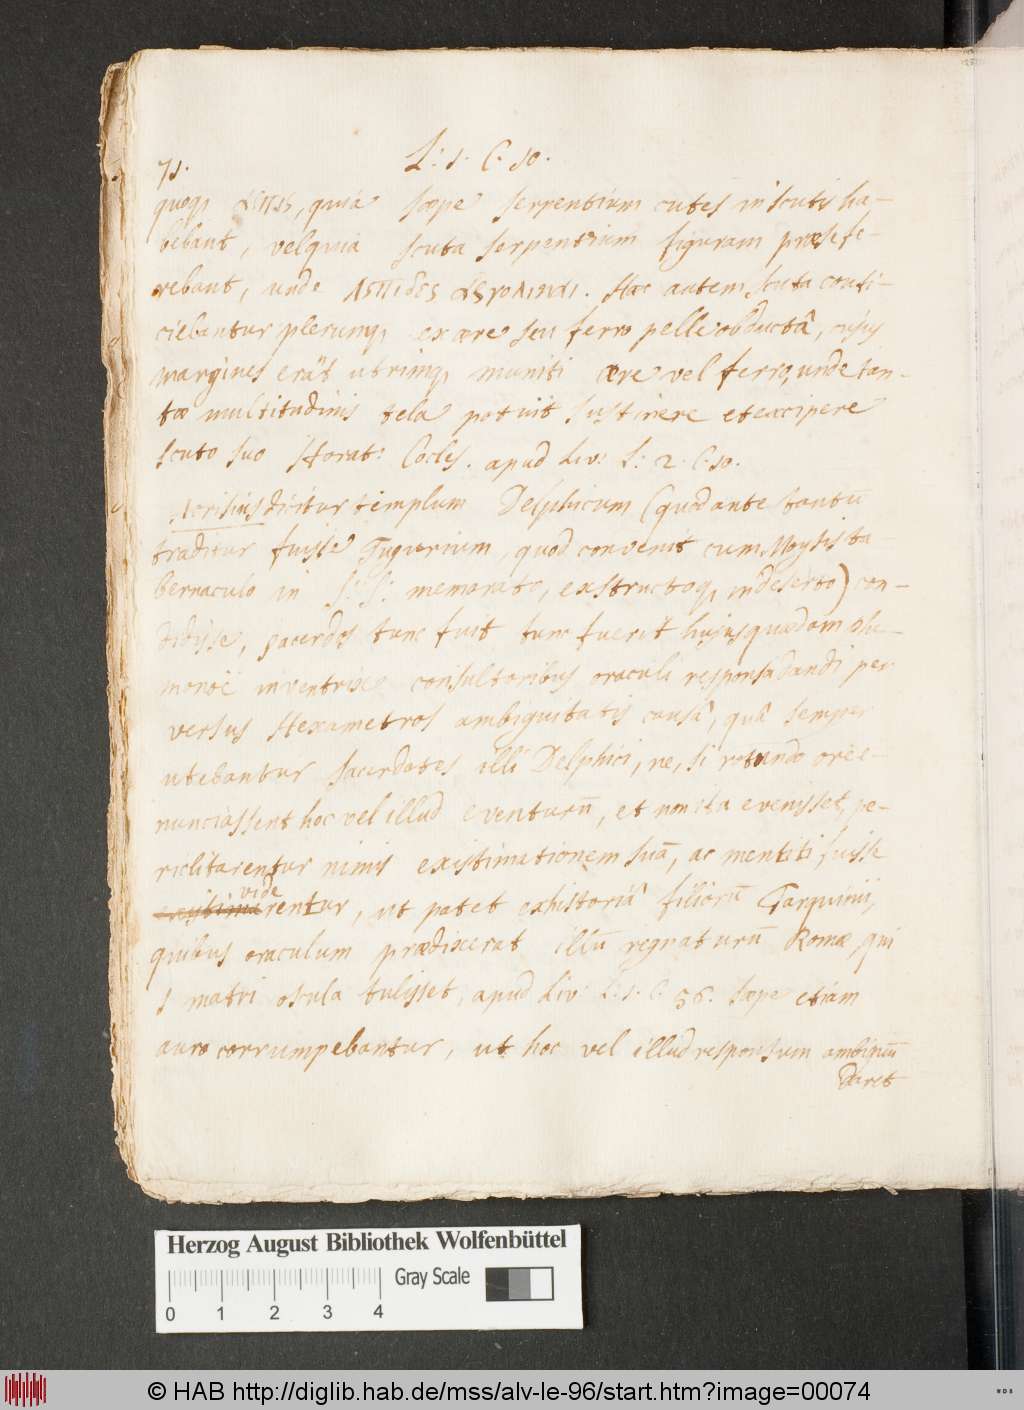 71. L: 1. C. 10.
quoq, ασπις, quia sæpe serpentium cutes in scutis ha-
bebant, vel quia scuta serpentium figuram præsefe-
rebant, unde Hæc autem scuta confi-
ciebantur plerumq, ex ære seu ferro pelle obductâ, cujus
margines erāt utrimq, muniti ære vel ferro, unde tan-
tæ multitudinis tela potuit sustinere et excipere
scuto suo Horat: Cocles. apud Liv: L: 2. C. 10.
Acrisius dicitur templum Delphicum (quod ante tantū
traditur fuisse Tugurium, quod convenit cum Moysis ta-
bernaculo in S: S: memorato, exstructoq, in deserto) con-
didisse, sacerdos tunc fuit tunc fuerit hujus quædam Phe-
monoë inventrix consultoribus oraculi responsa dandi per
versus Hexametros ambiguitatis causâ, quâ semper
utebantur sacerdotes illi Delphici, ne, si rotundo ore e-
nunciassent hoc vel illud eventurū, et non ita evenisset, pe-
riclitarentur nimis existimationem suā, ac mentiti fuisse
vide
existimarentur, ut patet ex historiâ filiorū Tarquinii,
quibus oraculum prædixerat illū regnaturū Romæ, qui
1 matri oscula tulisset, apud Liv: L: 1. C. 56. sæpe etiam
auro corrumpebantur, ut hoc vel illud responsum ambiguū
daret
Herzog August Bibliothek Wolfenbüttel
Gray Scale
0 1 2 3 4
© HAB http://diglib.hab.de/mss/alv-le-96/start.htm?image=00074